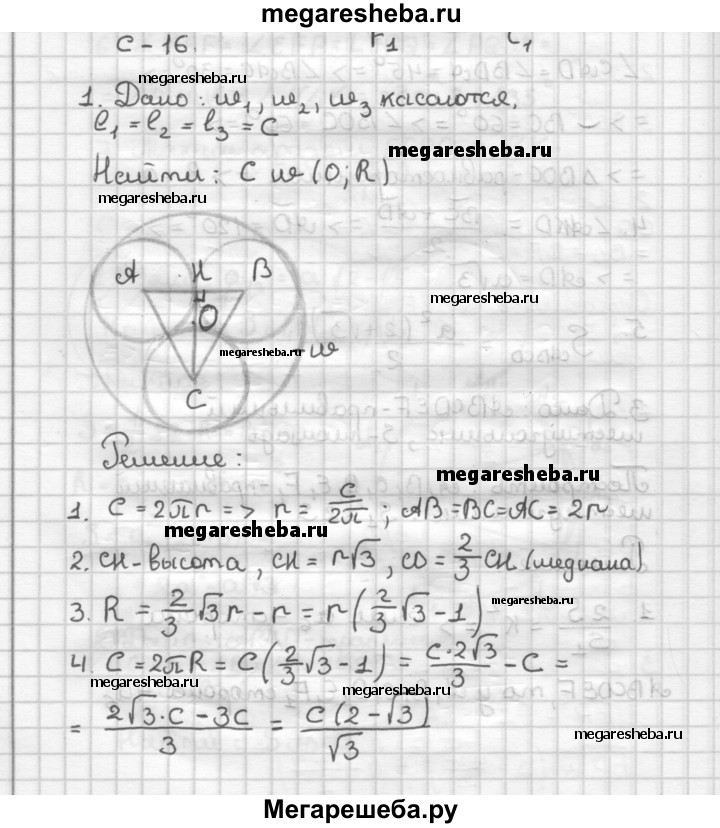 megaresheba.ru
С-16. F₁ C₁
megaresheba.ru
1. Дано: w₁, w₂, w₃ касаются,
l₁ = l₂ = l₃ = C
megaresheba.ru
Найти: C w(O; R)
megaresheba.ru
A H B
O
megaresheba.ru
megaresheba.ru
w
C
Решение:
megaresheba.ru
1. C = 2πr => r = C/2π; AB = BC = AC = 2r
megaresheba.ru
2. CH - высота, CH = r√3, CO = 2/3 CH (медиана)
3. R = 2/3 √3 r - r = r(2/3 √3 - 1)
megaresheba.ru
4. C = 2πR = C(2/3 √3 - 1) = C·2√3/3 - C =
megaresheba.ru
megaresheba.ru
= 2√3·C - 3C/3 = C(2 - √3)/√3
megaresheba.ru
Мегарешеба.ру